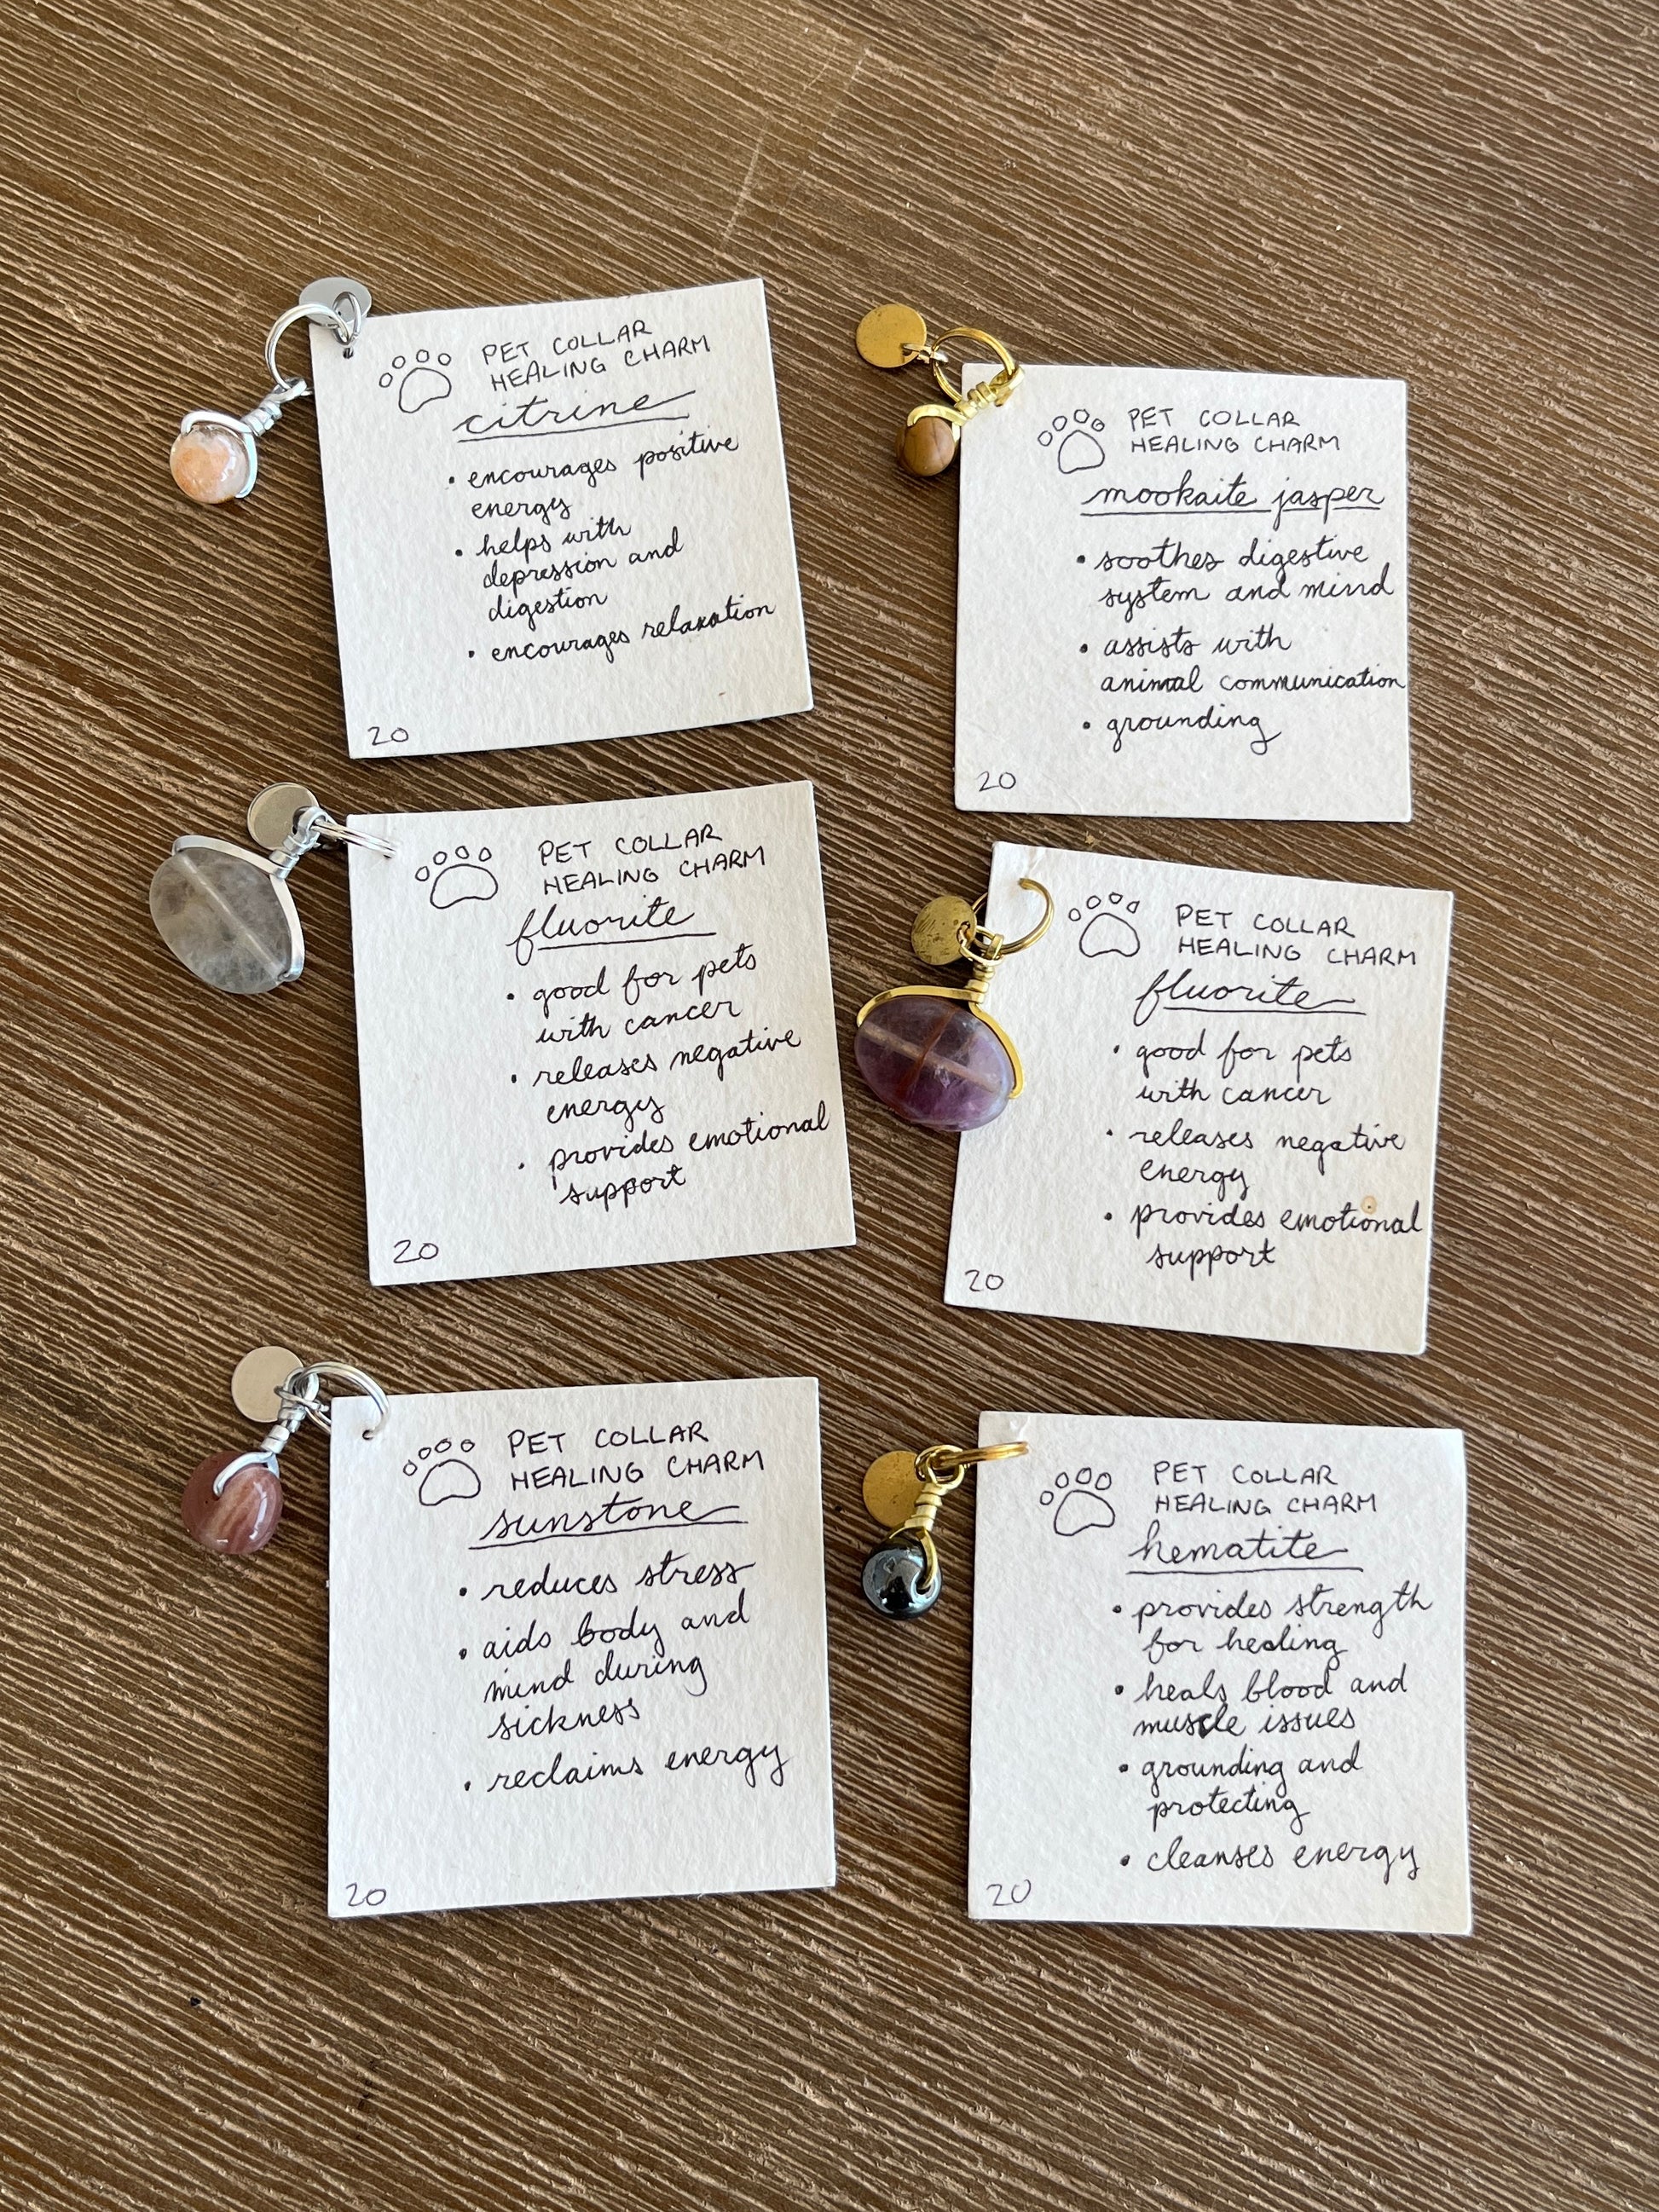 PET COLLAR
HEALING CHARM
citrine
• encourages positive
energy
• helps with
depression and
digestion
• encourages relaxation
20
PET COLLAR
HEALING CHARM
mookaite jasper
• soothes digestive
system and mind
• assists with
animal communication
• grounding
20
PET COLLAR
HEALING CHARM
fluorite
• good for pets
with cancer
• releases negative
energy
• provides emotional
support
20
PET COLLAR
HEALING CHARM
fluorite
• good for pets
with cancer
• releases negative
energy
• provides emotional
support
20
PET COLLAR
HEALING CHARM
sunstone
• reduces stress
• aids body and
mind during
sickness
• reclaims energy
20
PET COLLAR
HEALING CHARM
hematite
• provides strength
for healing
• heals blood and
muscle issues
• grounding and
protecting
• cleanses energy
20